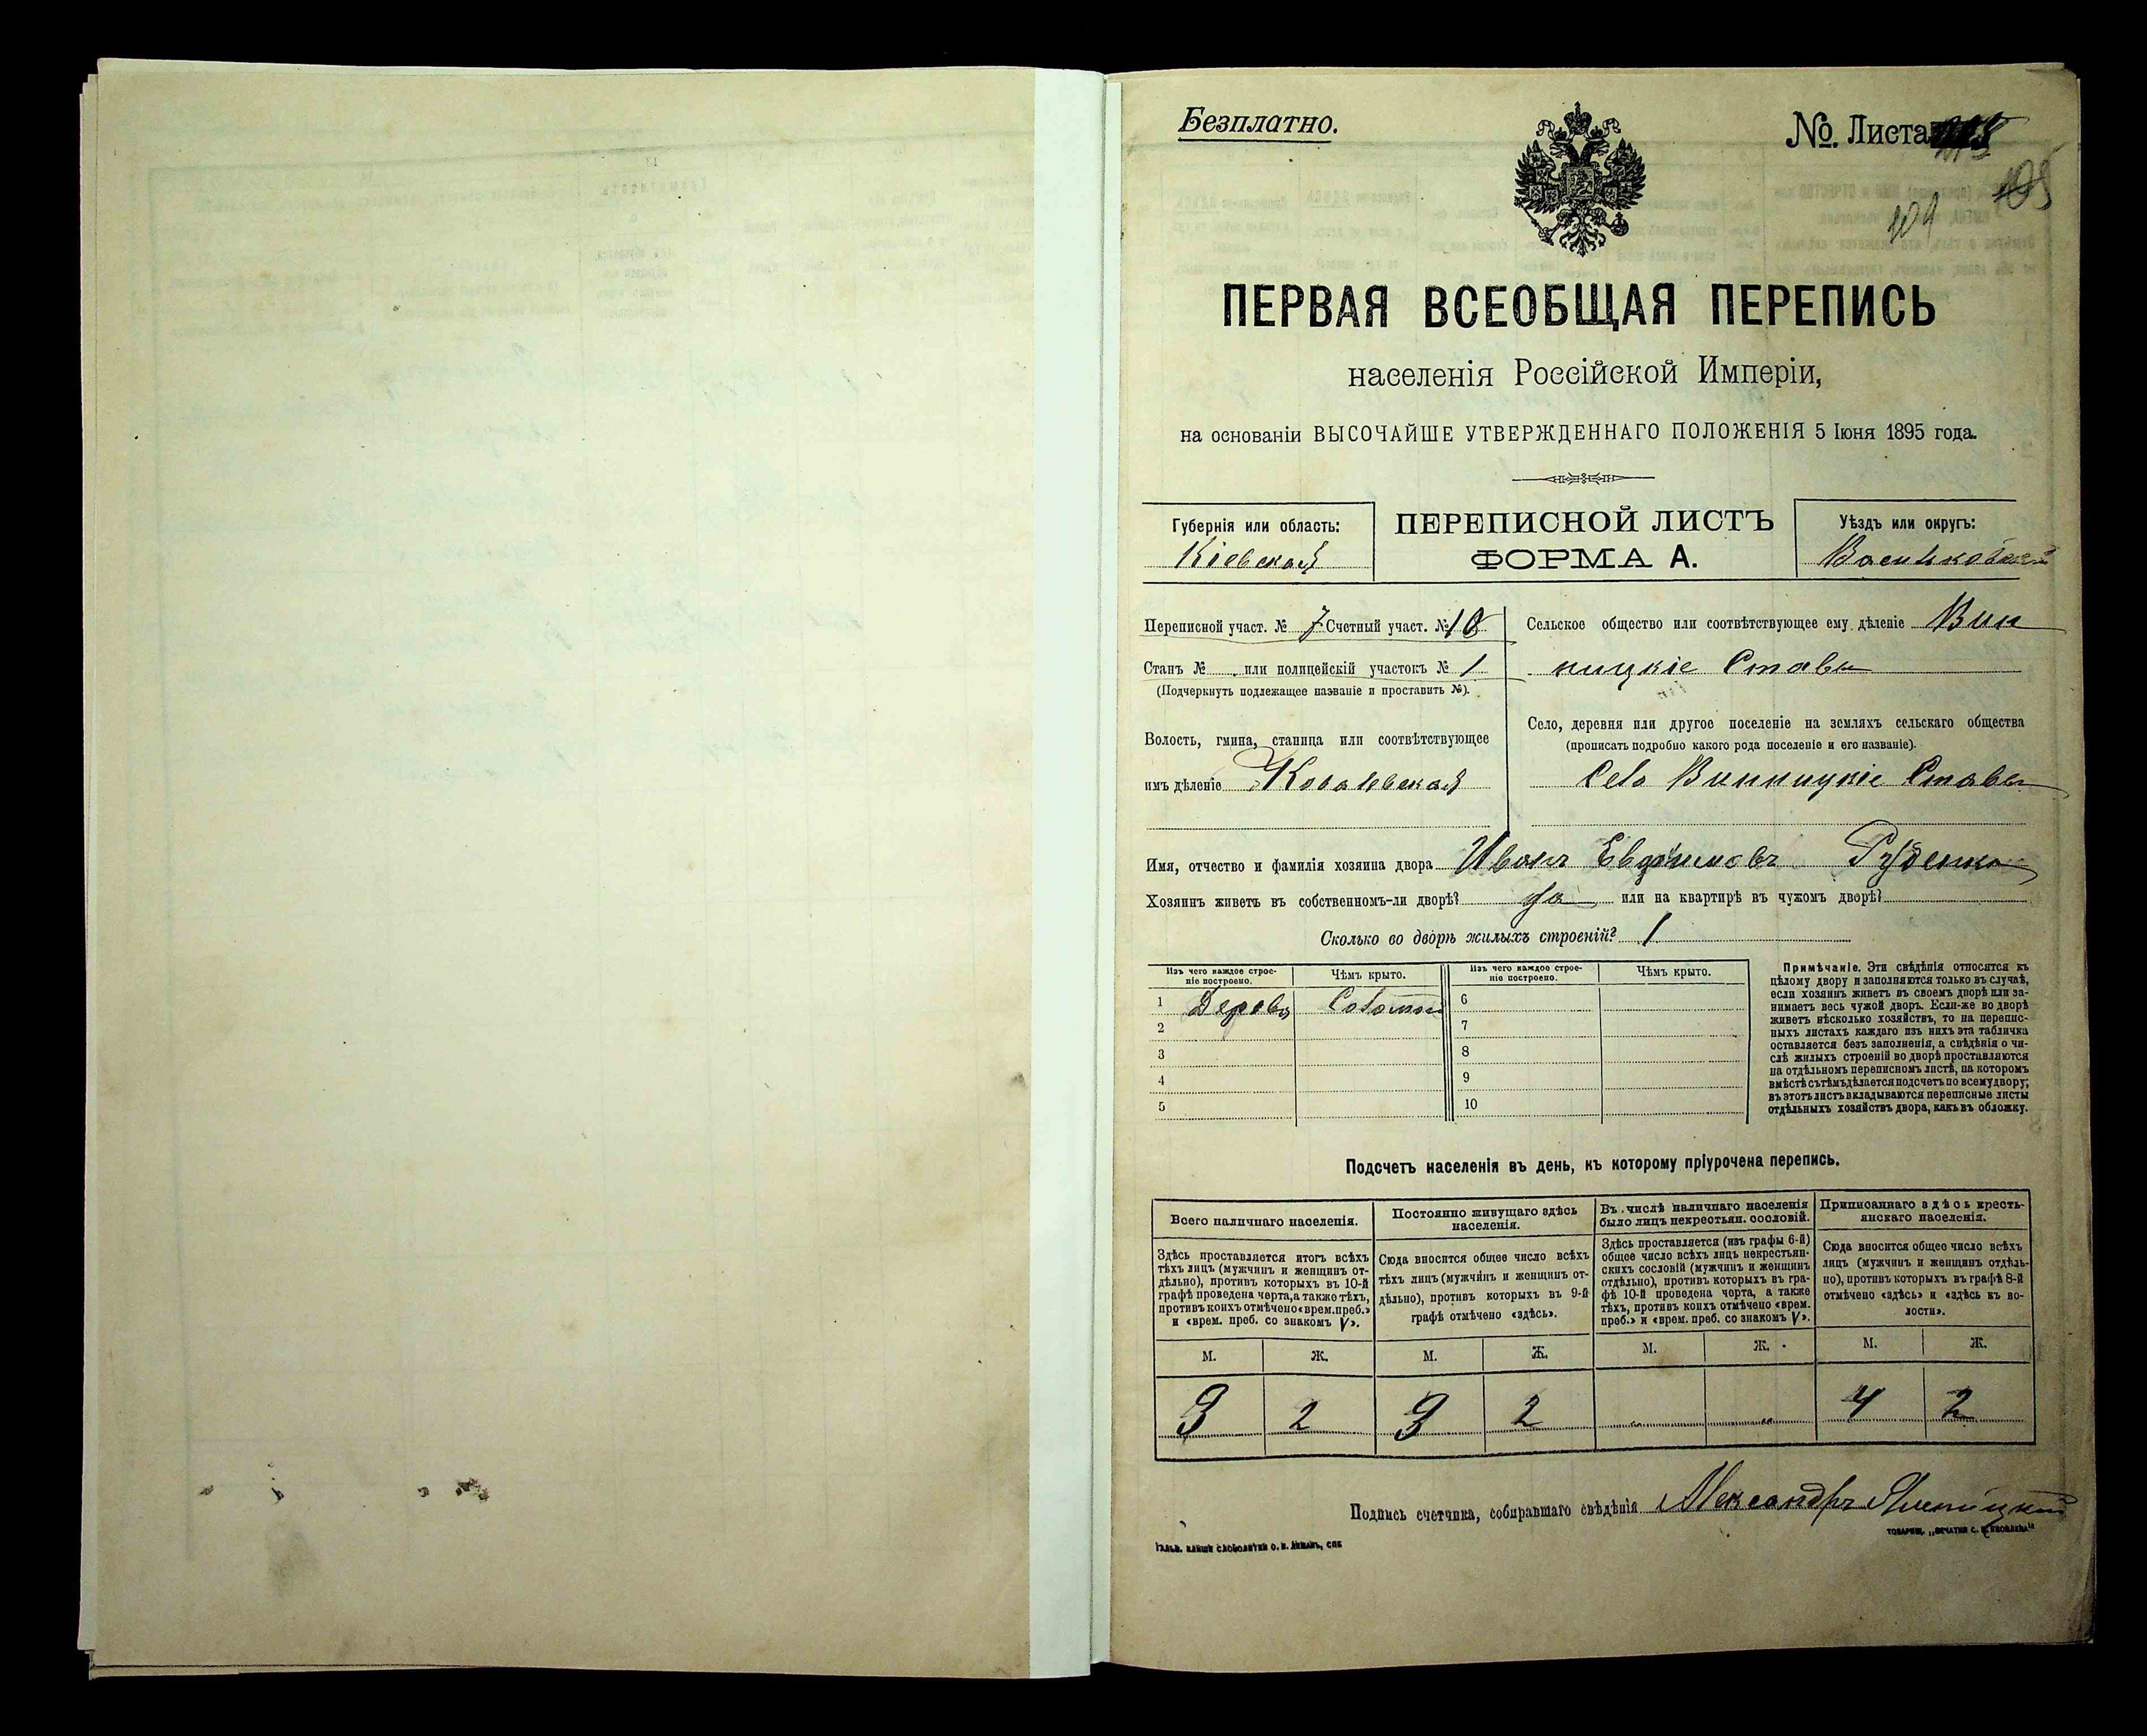 Безплатно.
№. Листа
105
109
ПЕРВАЯ ВСЕОБЩАЯ ПЕРЕПИСЬ
населенія Россійской Имперіи,
на основаніи ВЫСОЧАЙШЕ УТВЕРЖДЕННАГО ПОЛОЖЕНІЯ 5 Іюня 1895 года.
Губернія или область:
Кіевская
ПЕРЕПИСНОЙ ЛИСТЪ
ФОРМА А.
Уѣздъ или округъ:
Васильковскій
Переписной участ. № 7 Счетный участ. № 18
Станъ № или полицейскій участокъ № 1
(Подчеркнуть подлежащее названіе и проставить №).
Волость, гмина, станица или соотвѣтствующее
имъ дѣленіе Ковалевская
Сельское общество или соотвѣтствующее ему дѣленіе Вин
ницкіе Ставы
Село, деревня или другое поселеніе на земляхъ сельскаго общества
(прописать подробно какого рода поселеніе и его названіе).
Село Винницкіе Ставы
Имя, отчество и фамилія хозяина двора Иванъ Евдокимовъ Руденко
Хозяинъ живетъ въ собственномъ-ли дворѣ? да или на квартирѣ въ чужомъ дворѣ?
Сколько во дворѣ жилыхъ строеній? 1
Изъ чего каждое строе-
ніе построено.
Чѣмъ крыто.
Изъ чего каждое строе-
ніе построено.
Чѣмъ крыто.
1 Дерева Соломы 6
2 7
3 8
4 9
5 10
Примѣчаніе. Эти свѣдѣнія относятся къ
цѣлому двору и заполняются только въ случаѣ,
если хозяинъ живетъ въ своемъ дворѣ или за-
нимаетъ весь чужой дворъ. Если-же во дворѣ
живетъ нѣсколько хозяйствъ, то на перепис-
ныхъ листахъ каждаго изъ нихъ эта табличка
оставляется безъ заполненія, а свѣдѣнія о чи-
слѣ жилыхъ строеній во дворѣ проставляются
на отдѣльномъ переписномъ листѣ, на которомъ
вмѣстѣ съ тѣмъ дѣлается подсчетъ по всему двору;
въ этотъ листъ вкладываются переписные листы
отдѣльныхъ хозяйствъ двора, какъ въ обложку.
Подсчетъ населенія въ день, къ которому пріурочена перепись.
Всего наличнаго населенія.
Здѣсь проставляется итогъ всѣхъ
тѣхъ лицъ (мужчинъ и женщинъ от-
дѣльно), противъ которыхъ въ 10-й
графѣ проведена черта, а также тѣхъ,
противъ коихъ отмѣчено «врем. преб.»
и «врем. преб. со знакомъ V».
Постоянно живущаго здѣсь
населенія.
Сюда вносится общее число всѣхъ
тѣхъ лицъ (мужчинъ и женщинъ от-
дѣльно), противъ которыхъ въ 9-й
графѣ отмѣчено «здѣсь».
Въ числѣ наличнаго населенія
было лицъ некрестьян. сословій.
Здѣсь проставляется (изъ графы 6-й)
общее число всѣхъ лицъ некрестьян-
скихъ сословій (мужчинъ и женщинъ
отдѣльно), противъ которыхъ въ гра-
фѣ 10-й проведена черта, а также
тѣхъ, противъ коихъ отмѣчено «врем.
преб.» и «врем. преб. со знакомъ V».
Приписаннаго здѣсь кресть-
янскаго населенія.
Сюда вносится общее число всѣхъ
лицъ (мужчинъ и женщинъ отдѣль-
но), противъ которыхъ въ графѣ 8-й
отмѣчено «здѣсь» и «здѣсь къ во-
лости».
М. Ж. М. Ж. М. Ж. М. Ж.
3 2 3 2 „ „ 4 2
Подпись счетчика, собиравшаго свѣдѣнія Александръ
ТОВАРИЩ. „ПЕЧАТНЯ С. П. ЯКОВЛЕВА“